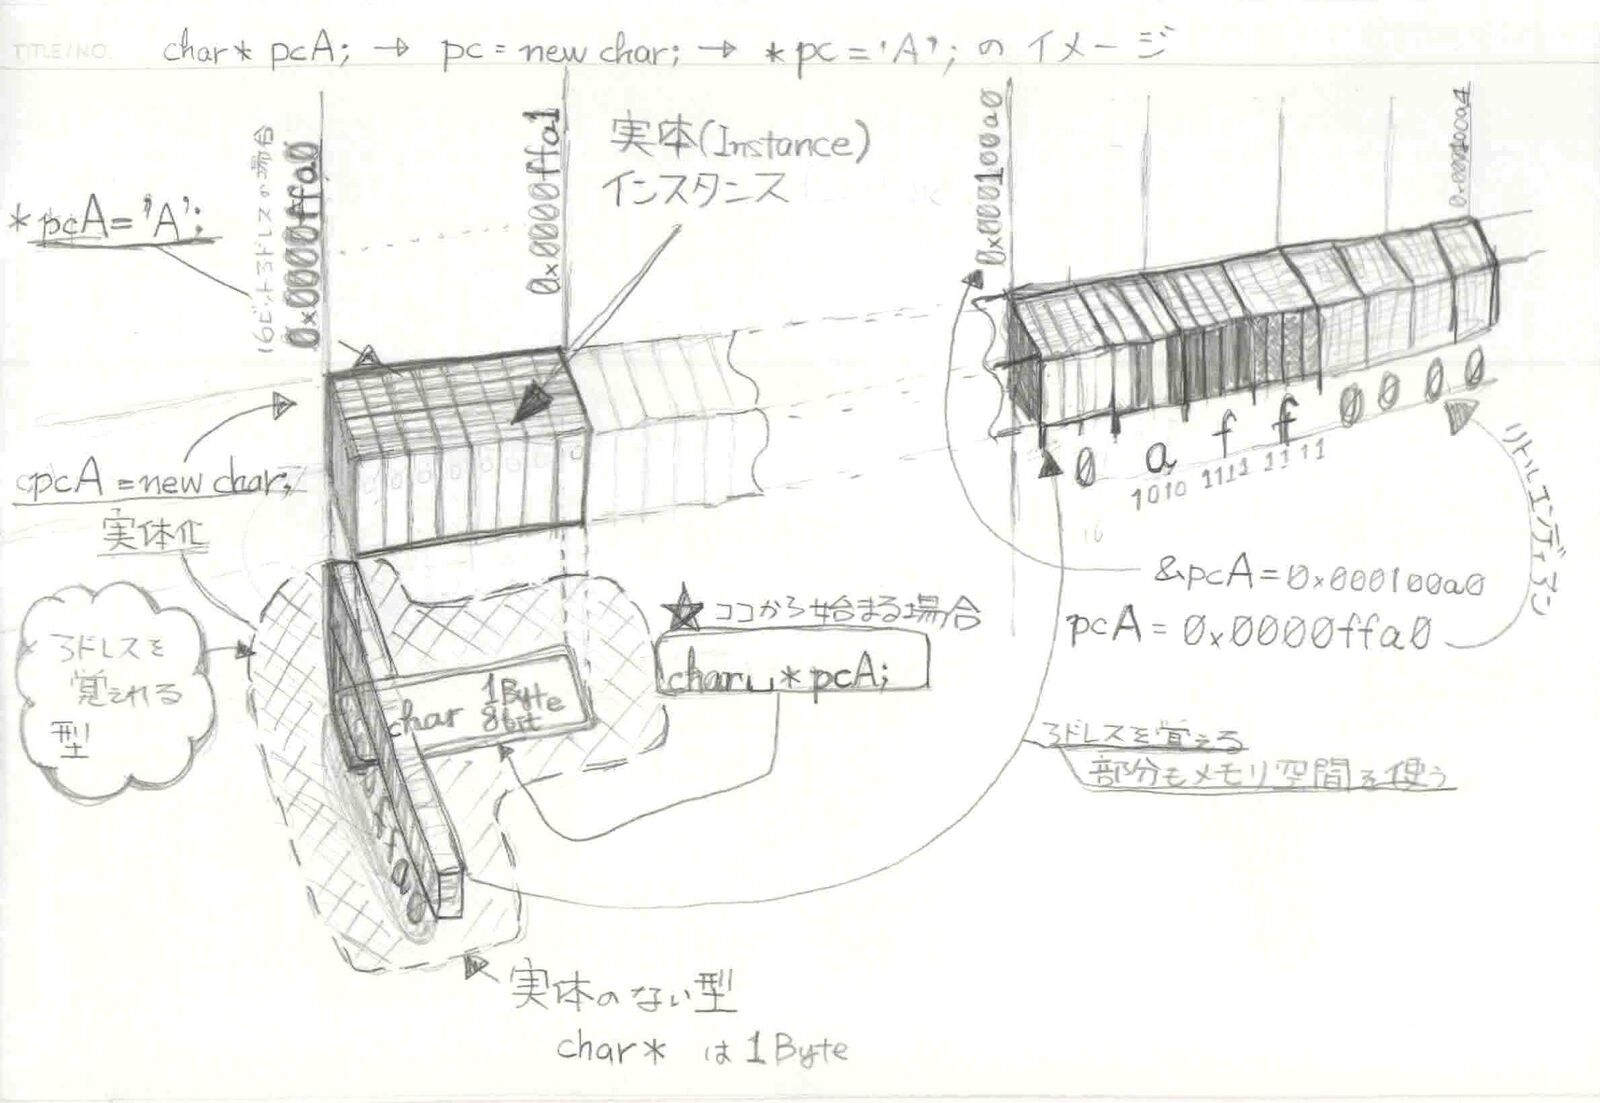 TITLE/NO.
char* pcA; → pc = new char; → *pc = 'A'; の イメージ
16ビットアドレスの場合
0x0000ffa0
0x0000ffa1
実体(Instance)
インスタンス
0x000100a0
0x000100a4
*pcA = 'A';
pcA = new char;
実体化
アドレスを
覚えれる
型
char 1Byte
8bit
★ココから始まる場合
char␣*pcA;
0 a f f 0 0 0 0
1010 1111 1111
リトルエンディアン
&pcA = 0x000100a0
pcA = 0x0000ffa0
アドレスを覚える
部分もメモリ空間を使う
実体のない型
char* は 1Byte